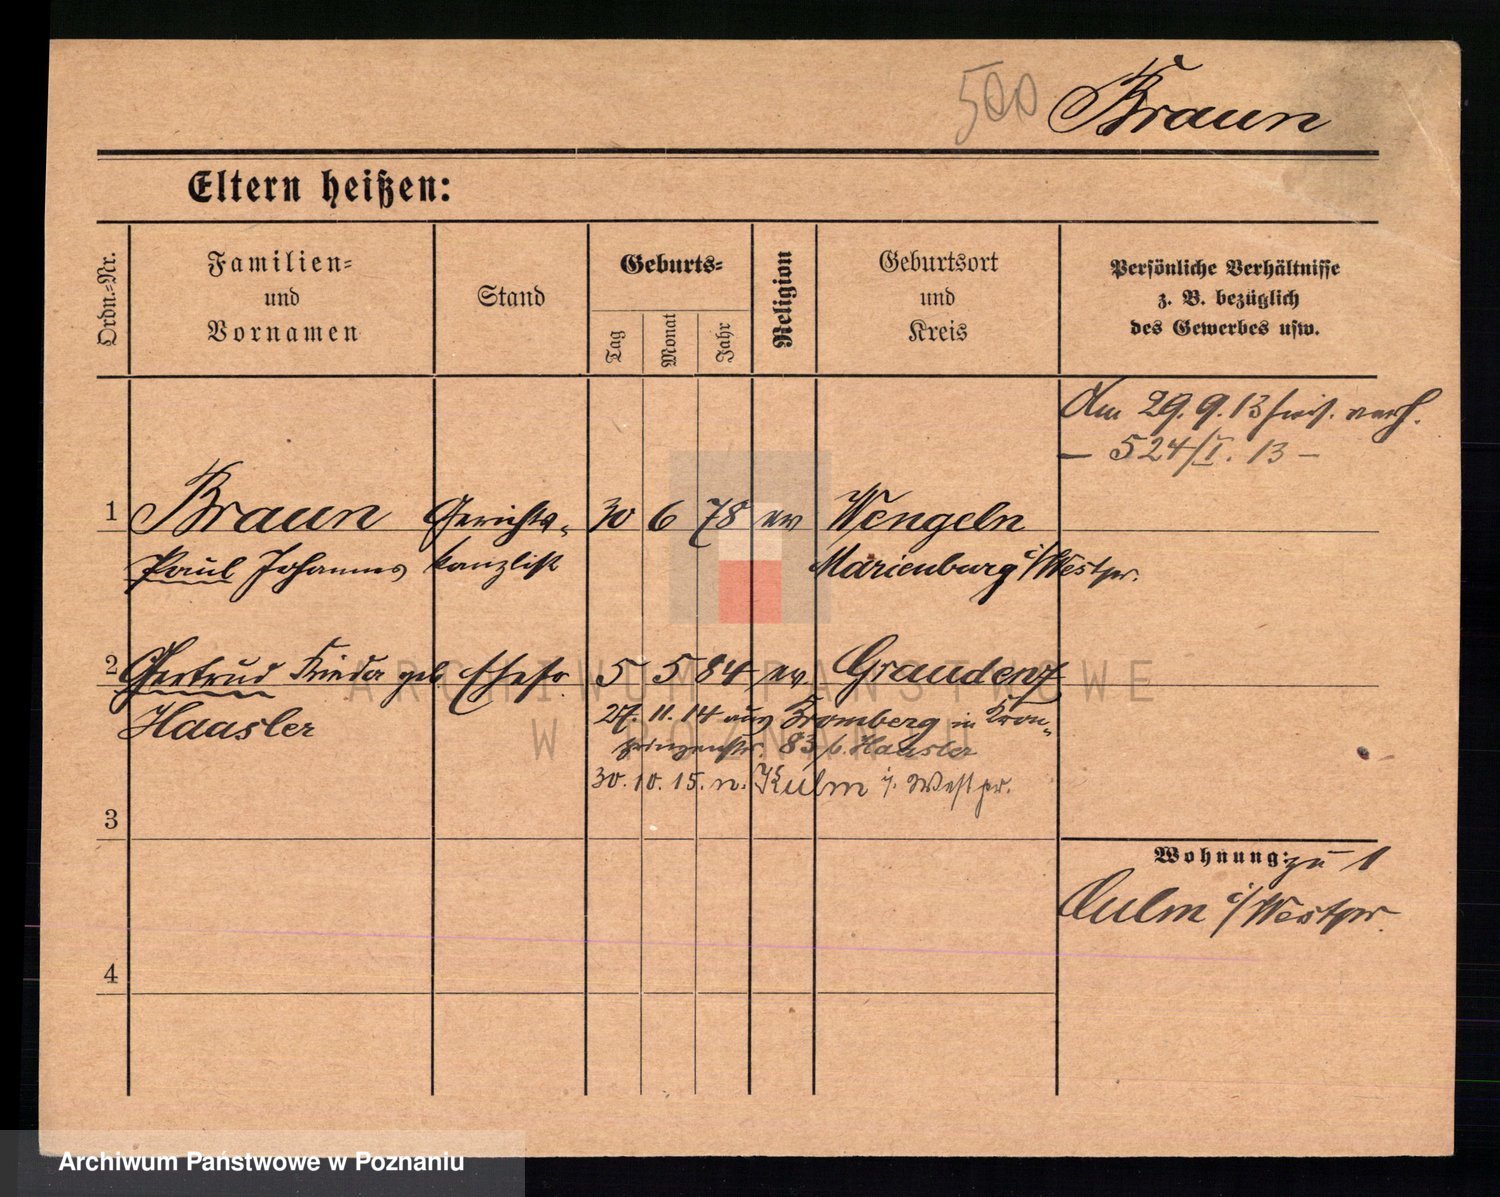 500 Braun
Eltern heißen:
Ordn.-Nr.
Familien-
und
Vornamen
Stand
Geburts-
Tag
Monat
Jahr
Religion
Geburtsort
und
Kreis
Persönliche Verhältnisse
z. B. bezüglich
des Gewerbes usw.
Am 29. 9. 13
– 524/I. 13 –
1 Braun Gerichts- 30 6 78 ev Wengeln
Paul Johannes kanzlist Marienburg i/Westpr.
2 Gertrud Frieda geb Ehefr. 5 5 84 ev Graudenz
Haassler
27. 11. 14 aus Bromberg in Kron-
prinzenstr. 83 b. Haasler
30. 10. 15. n. Kulm i. Westpr.
3
Wohnung: zu 1
Culm i/Westpr.
4
ARCHIWUM PAŃSTWOWE
W POZNANIU
Archiwum Państwowe w Poznaniu